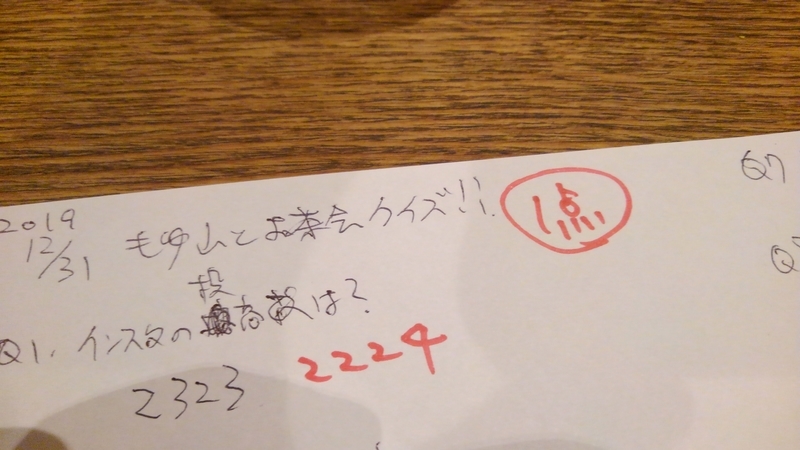 2019
12/31 もゆ山とお茶会クイズ!! 1点
Q7
Q1. インスタの投高数は?
2323 2224